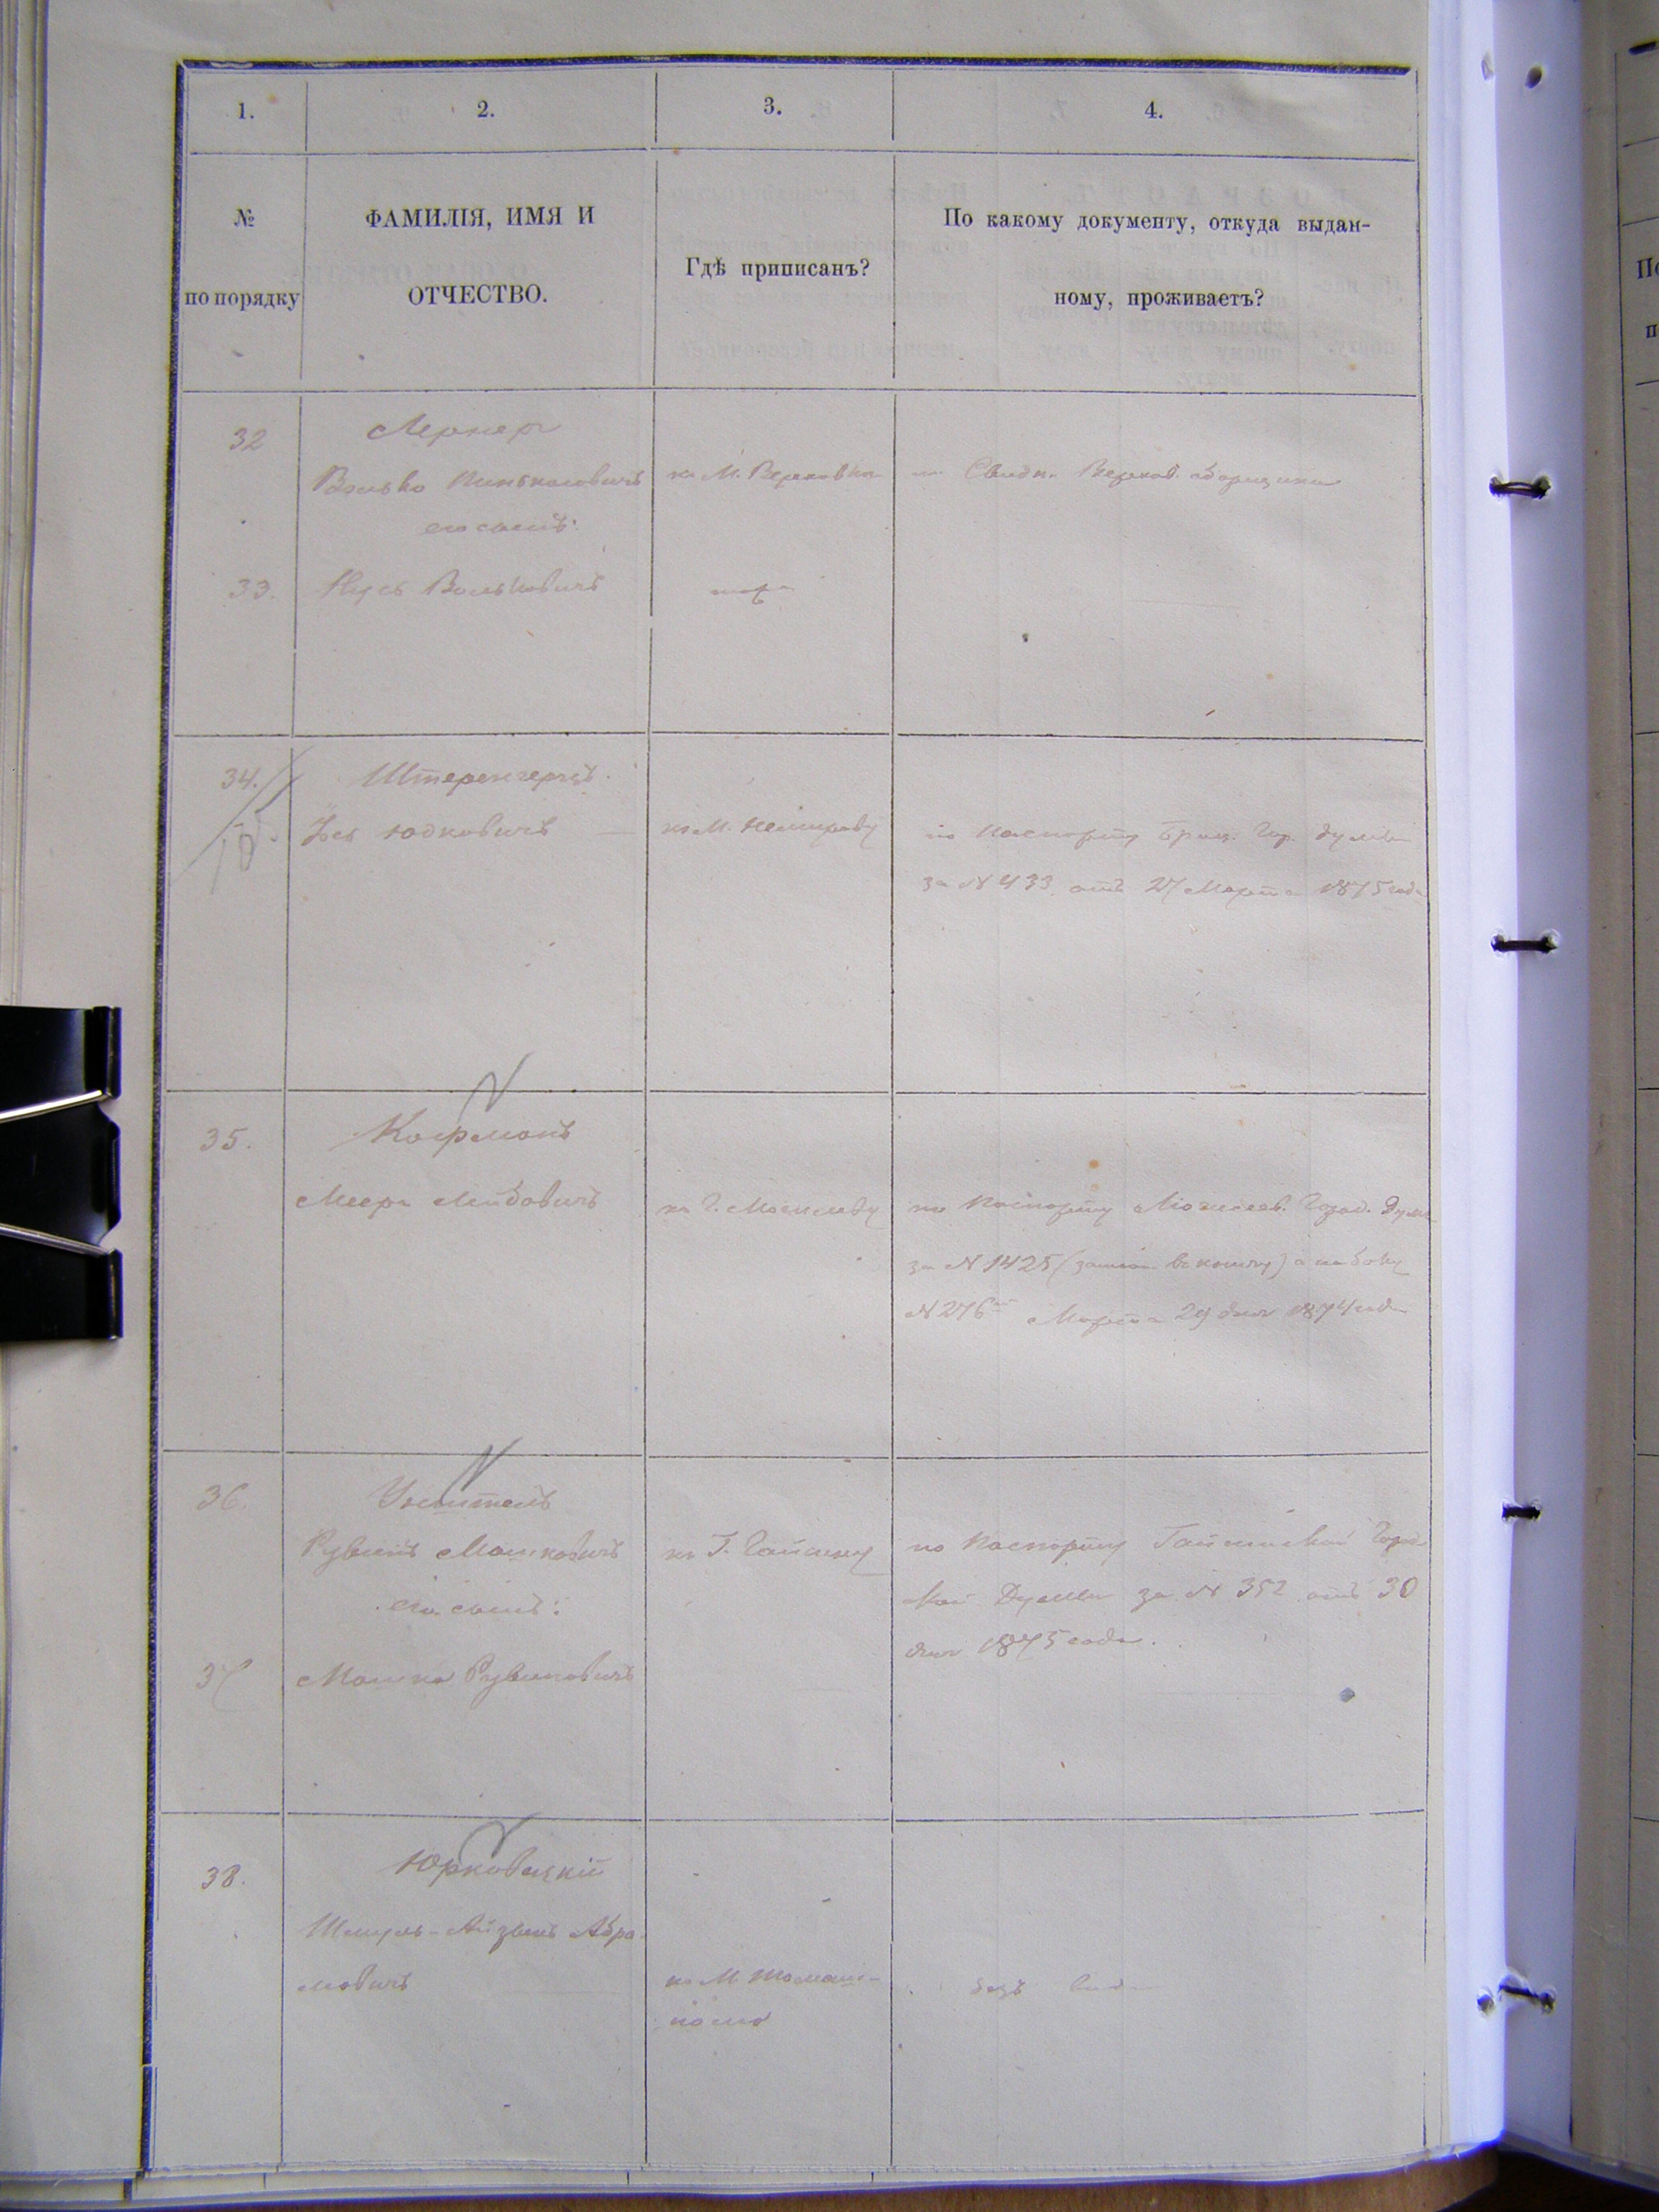 1. 2. 3. 4.
№ по порядку
ФАМИЛІЯ, ИМЯ И
ОТЧЕСТВО.
Гдѣ приписанъ?
По какому документу, откуда выдан-
ному, проживаетъ?
32 Лернеръ
Волько Пинькасовичъ къ М. Верховкѣ по Свидѣ. Верхов. сборщика
его сынъ:
33. Нусь Вольковичъ тоже
34. Штеренгерцъ.
Юдковичъ къ М. Немирову по паспорту Брац. Гор. Думы
за № 433 отъ 27 Марта 1875 года
35. Кофманъ
Мееръ Лейбовичъ къ Г. Могилеву по паспорту Могилев. Город. Думы
за № 1425 а на боку
№ 276 Марта 29 дня 1874 года
36. Учитель
Рувинъ Мошковичъ къ Г. Гайсину по паспорту Гайсинской Город
ской Думы за № 352 отъ 30
его сынъ:
дня 1875 года.
37 Мошко Рувиновичъ
38. Юрковецкій
Шмуль-Айзикъ Абра-
мовичъ къ М. Томаш-
полю
безъ вида